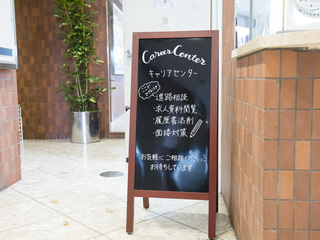 Career Center
キャリアセンター
・進路相談
・求人資料閲覧
・履歴書添削
・面接対策
お気軽にご相談ください
お待ちしています